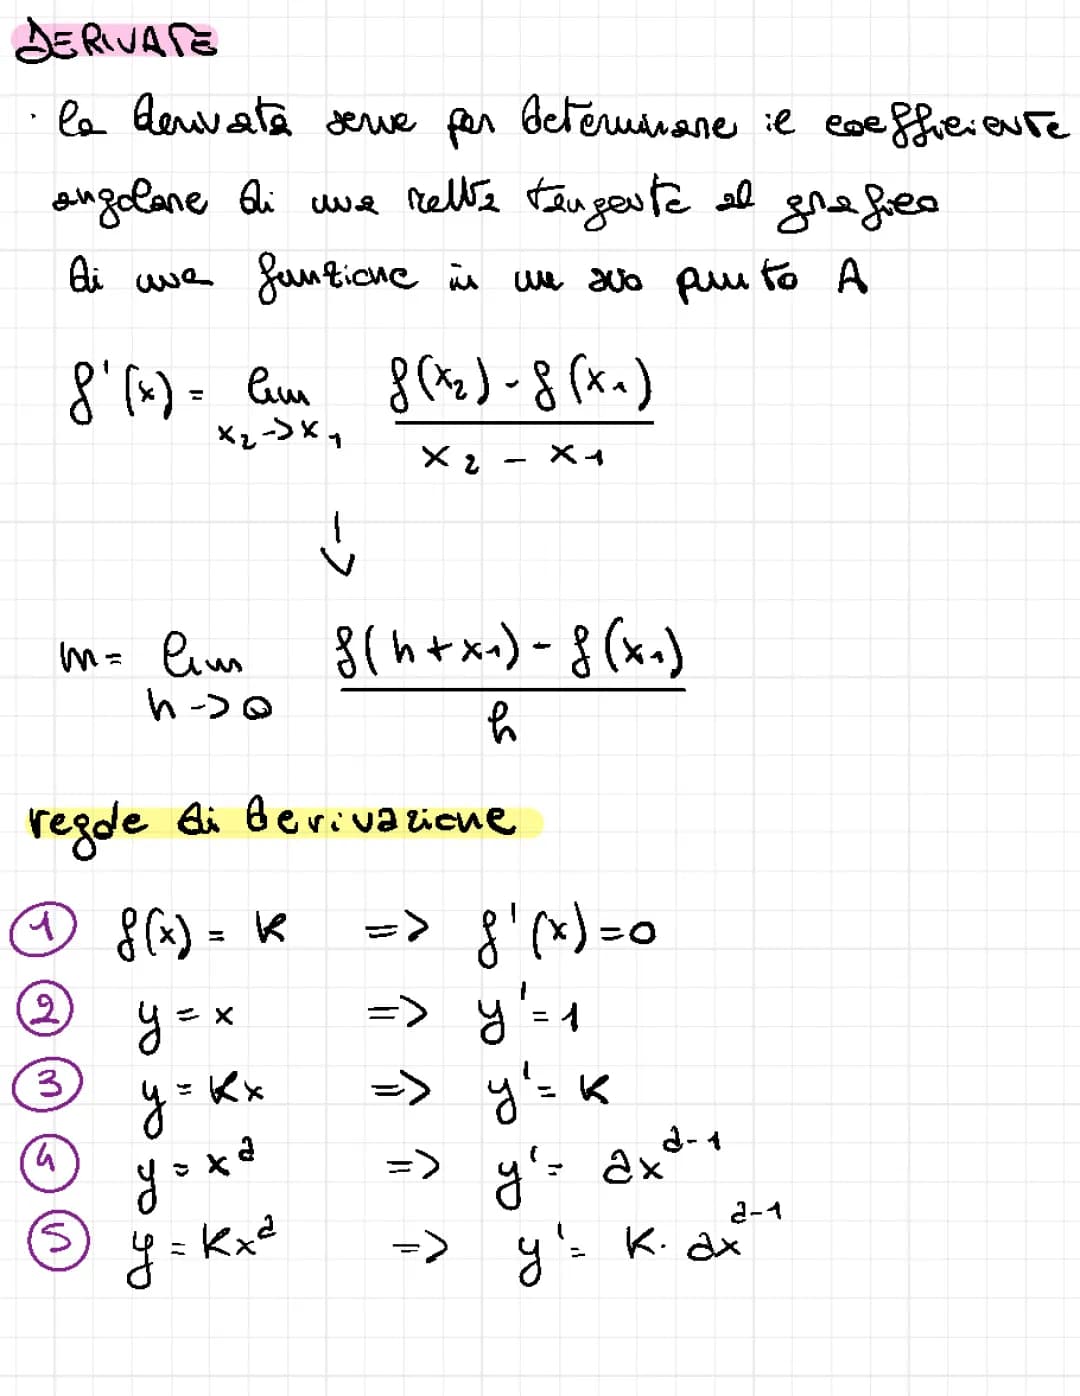 DERIVATE
· la derivata serve per determinare il coefficiente
angolare di una retta tangente al grafico
di una funzione in un suo punto A
f'(x) = lim f(x₂) - f(x₁)
x₂->x₁ x₂ - x₁
↓
m = lim f(h+x₁) - f(x₁)
h->0 h
regole di derivazione
1 f(x) = K => f'(x) = 0
2 y = x => y' = 1
3 y = Kx => y' = K
4 y = xᵃ => y' = axᵃ⁻¹
5 y = Kxᵃ => y' = K · axᵃ⁻¹